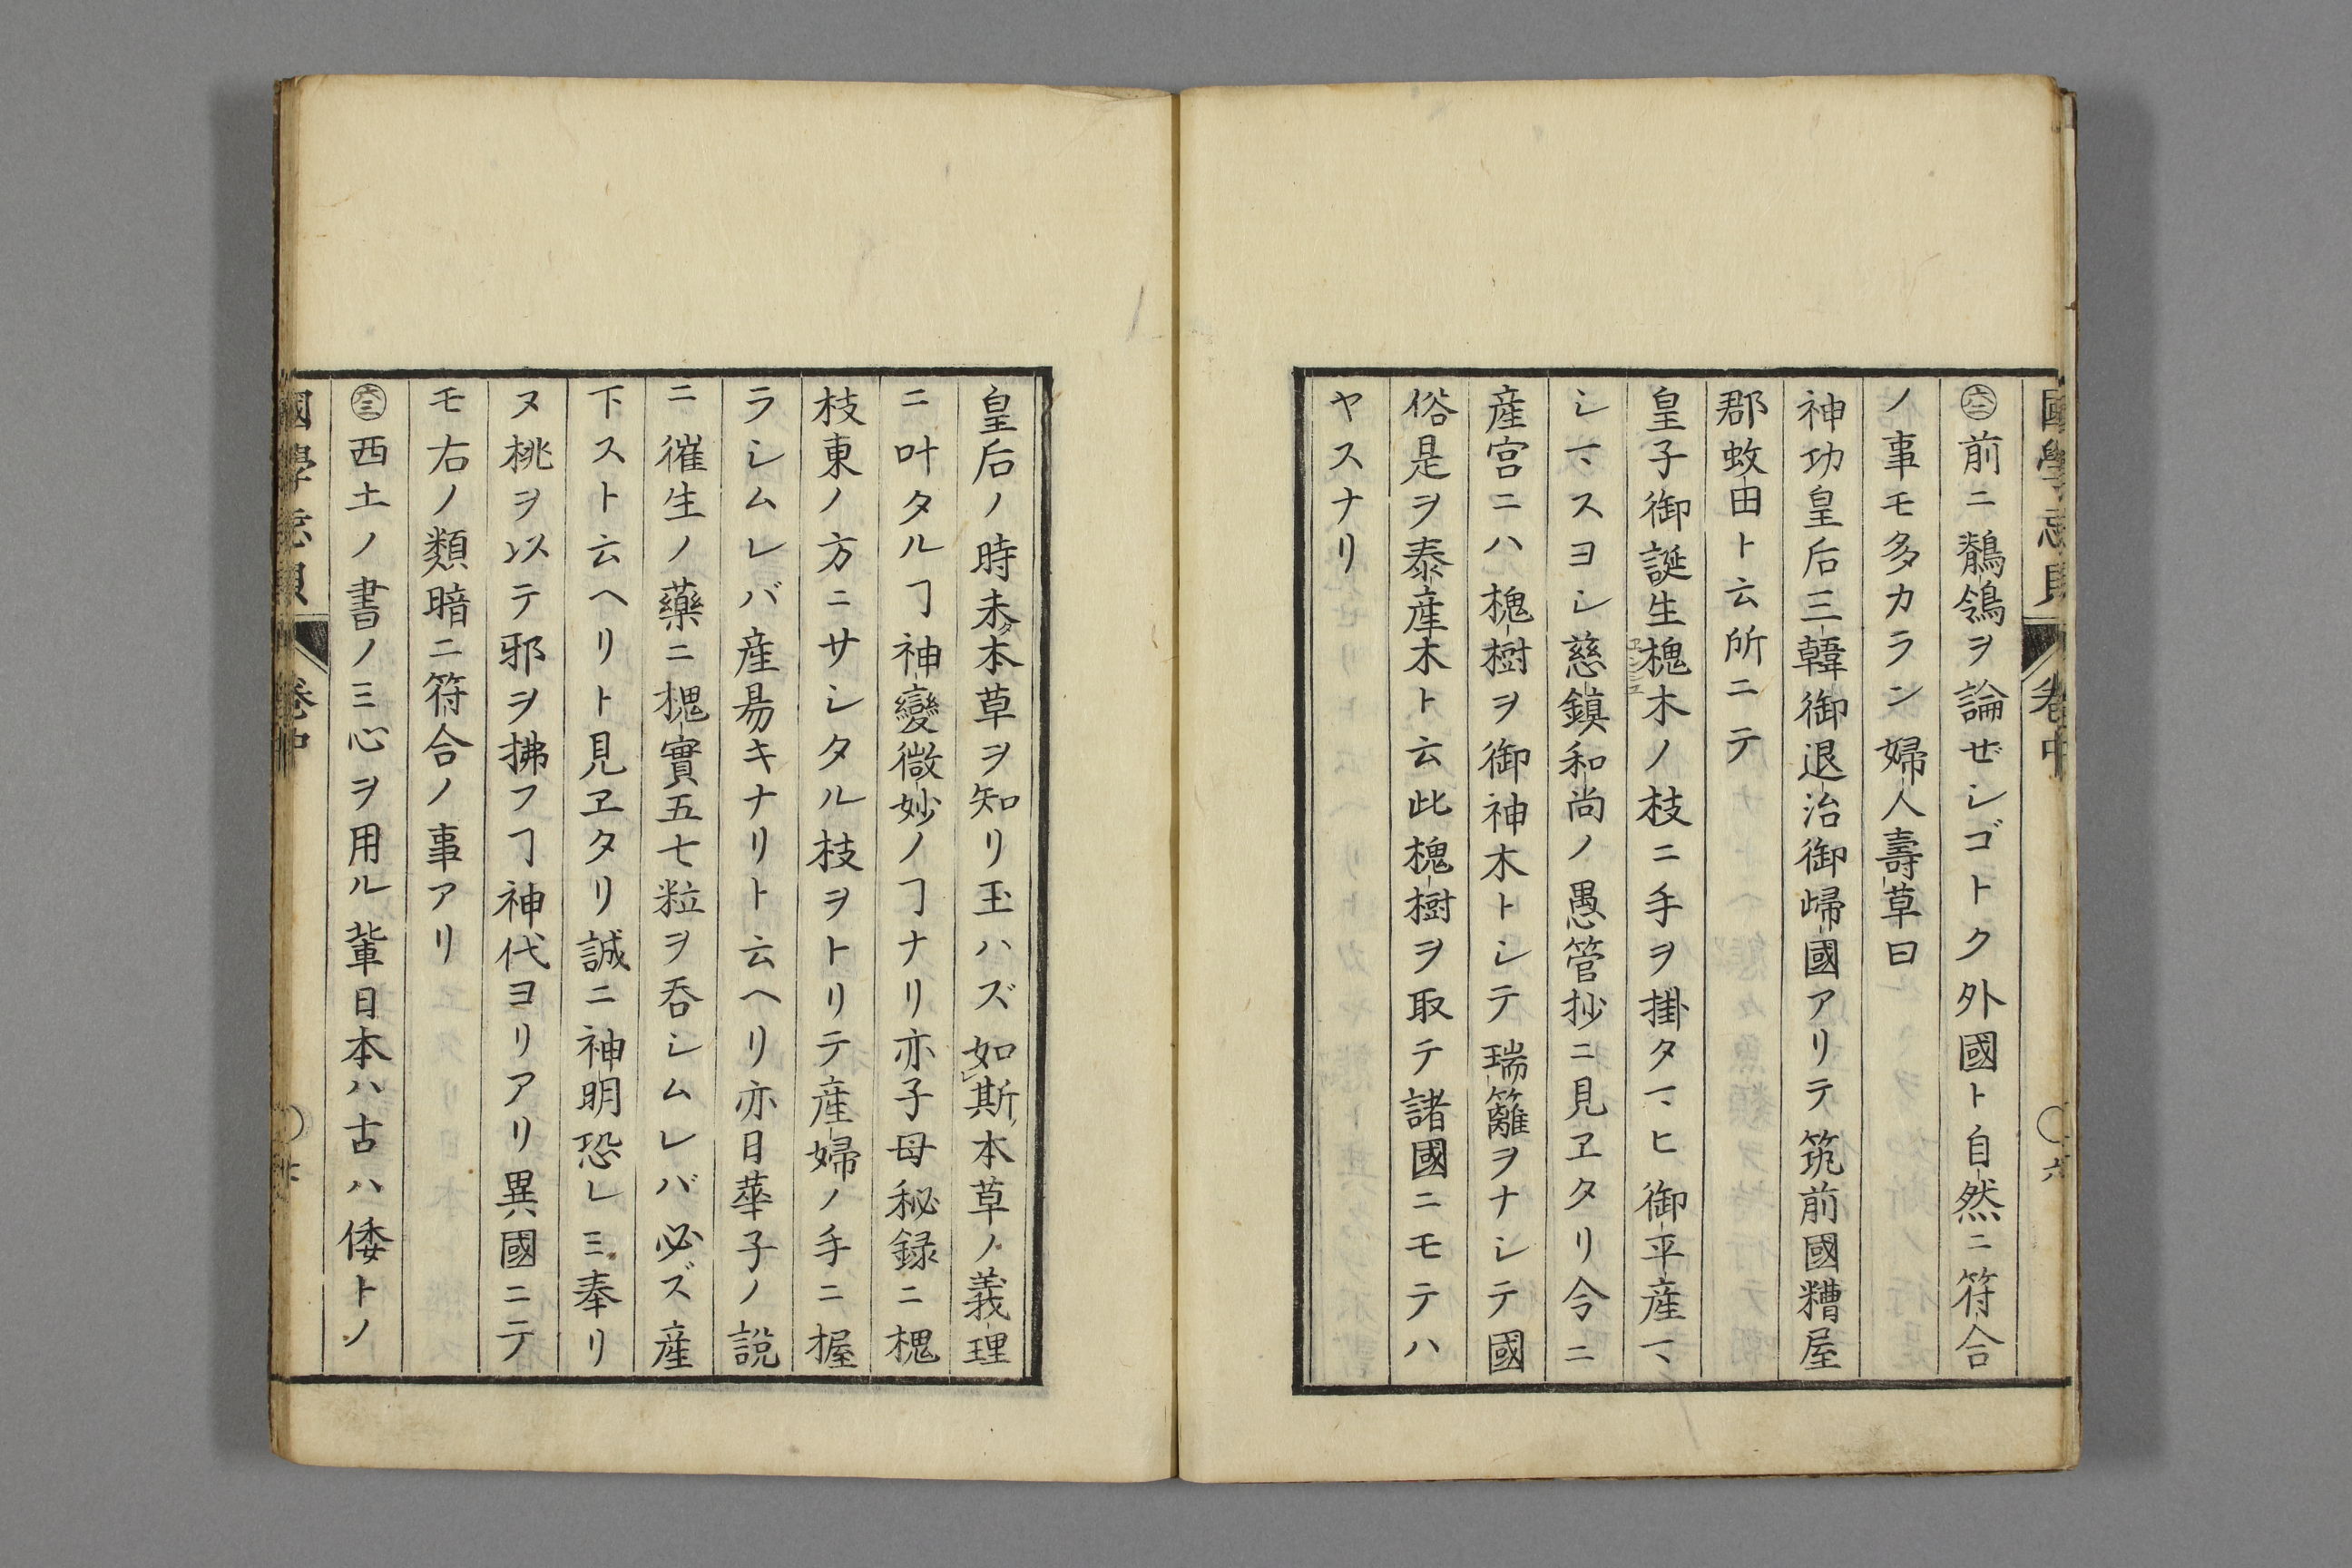 ㊅二前ニ鶺鴒ヲ論ゼシゴトク外國ト自然ニ符合
ノ事モ多カラン婦人壽草曰
神功皇后三韓御退治御歸國アリテ筑前國糟屋
郡蚊田ト云所ニテ
皇子御誕生槐木ノ枝ニ手ヲ掛タマヒ御平産マ
シマスヨシ慈鎮和尚ノ愚管抄ニ見ヱタリ今ニ
産宮ニハ槐樹ヲ御神木トシテ瑞籬ヲナシテ國
俗是ヲ泰産木ト云此槐樹ヲ取テ諸國ニモテハ
ヤスナリ
皇后ノ時未タ本草ヲ知リ玉ハズ如レ斯本草ノ義理
ニ叶タルヿ神變微妙ノヿナリ亦子母秘録ニ槐
枝東ノ方ニサシタル枝ヲトリテ産婦ノ手ニ握
ラシムレバ産易キナリト云ヘリ亦日華子ノ説
ニ催生ノ藥ニ槐實五七粒ヲ呑シムレバ必ズ産
下スト云ヘリト見ヱタリ誠ニ神明恐レミ奉リ
ヌ桃ヲ以テ邪ヲ拂フヿ神代ヨリアリ異國ニテ
モ右ノ類暗ニ符合ノ事アリ
㊅三西土ノ書ノミ心ヲ用ル輩日本ハ古ハ倭トノ